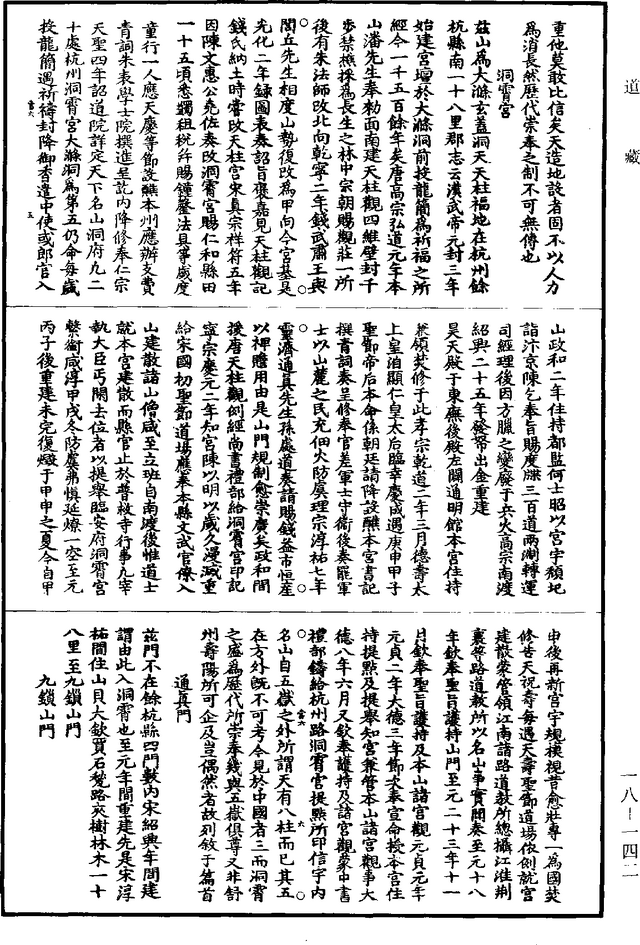 重他莫敢比信矣天造地設者固不以人力
為消長然歷代崇奉之制不可無傳也
洞霄宮
茲山為大滌玄蓋洞天天柱福地在杭州餘
杭縣南一十八里郡志云漢武帝元封三年
始建宮壇於大滌洞前投龍簡為祈福之所
經今一千五百餘年矣唐高宗弘道元年本
山潘先生奉勑面南建天柱觀四維壁封千
步禁樵採為長生之林中宗朝賜觀莊一所
後有朱法師改北向乾寧二年錢武肅王與
閭丘先生相度山勢復改為甲向今宮基是
光化二年錄圖表奏詔旨褒嘉見天柱觀記
錢氏納土時嘗改天柱宮宋真宗祥符五年
因陳文惠公堯佐奏改洞霄宮賜仁和縣田
一十五頃悉蠲租稅并賜鍾磬法具等歲度
童行一人應天慶等節設醮本州應辦支費
青詞朱表學士院撰進呈訖內降修奉仁宗
天聖四年詔道院詳定天下名山洞府凡二
十處杭州洞霄宮大滌洞為第五仍命每歲
投龍簡遇祈禱封降御香遣中使或郎官入
山政和二年住持都監何士昭以宮宇頹圮
詣汴京陳乞奉旨賜度牒三百道兩淛轉運
司經理後因方臘之變廢于兵火高宗南渡
紹興二十五年發帑出金重建
昊天殿于東廡後殿左闢通明館本宮住持
兼領焚修于此孝宗乾道二年三月德壽太
上皇洎顯仁皇太后臨幸慶成遇庚申甲子
聖節帝后本命係朝廷請降設醮本宮書記
撰青詞奏呈修奉官差軍士守衛後奏罷軍
士以山麓之民充佃火防虞理宗淳祐七年
靈濟通真先生孫處道奏請賜錢益市恒產
以裨贍用由是山門規制愈崇廣矣政和間
援唐天柱觀例經尚書禮部給洞霄宮印記
寧宗慶元二年知宮陳以明以歲久漫滅重
給宋國初聖節道場應奉本縣文武官僚入
山建散諸山僧咸至立班自南渡後惟道士
就本宮建散而縣官止於普救寺行事凡宰
執大臣丐閒去位者以提舉臨安府洞霄宮
繫銜咸淳甲戌冬防虞弗慎延燎一空至元
丙子後重建未完復燬于甲申之夏今自甲
申後再新宮宇規模視昔愈壯專一為國焚
修告天祝壽每遇天壽聖節道場依例就宮
建散蒙管領江南諸路道教所總攝江淮荊
襄等路道教所以名山事實聞奏至元十八
年欽奉聖旨護持山門至元二十三年十一
月欽奉聖旨護持及本山諸宮觀元貞元年
元貞二年大德三年節次奉宣命授本宮住
持提點及提舉知宮兼管本山諸宮觀事大
德八年六月又欽奉護持及諸宮觀蒙中書
禮部鑄給杭州路洞霄宮提點所印信宇內
名山自五嶽之外所謂天有八柱而已其五
在方外既不可考今見於中國者三而洞霄
之盛為歷代所崇奉幾與五嶽俱尊又非舒
州壽陽所可企及豈偶然者故列敘于篇首
通真門
茲門不在餘杭縣四門數內宋紹興年間建
謂由此入洞霄也至元年間重建先是宋淳
祐間住山貝大欽買石甃路夾樹林木一十
八里至九鎖山門
九鎖山門
道藏
一八-一四二